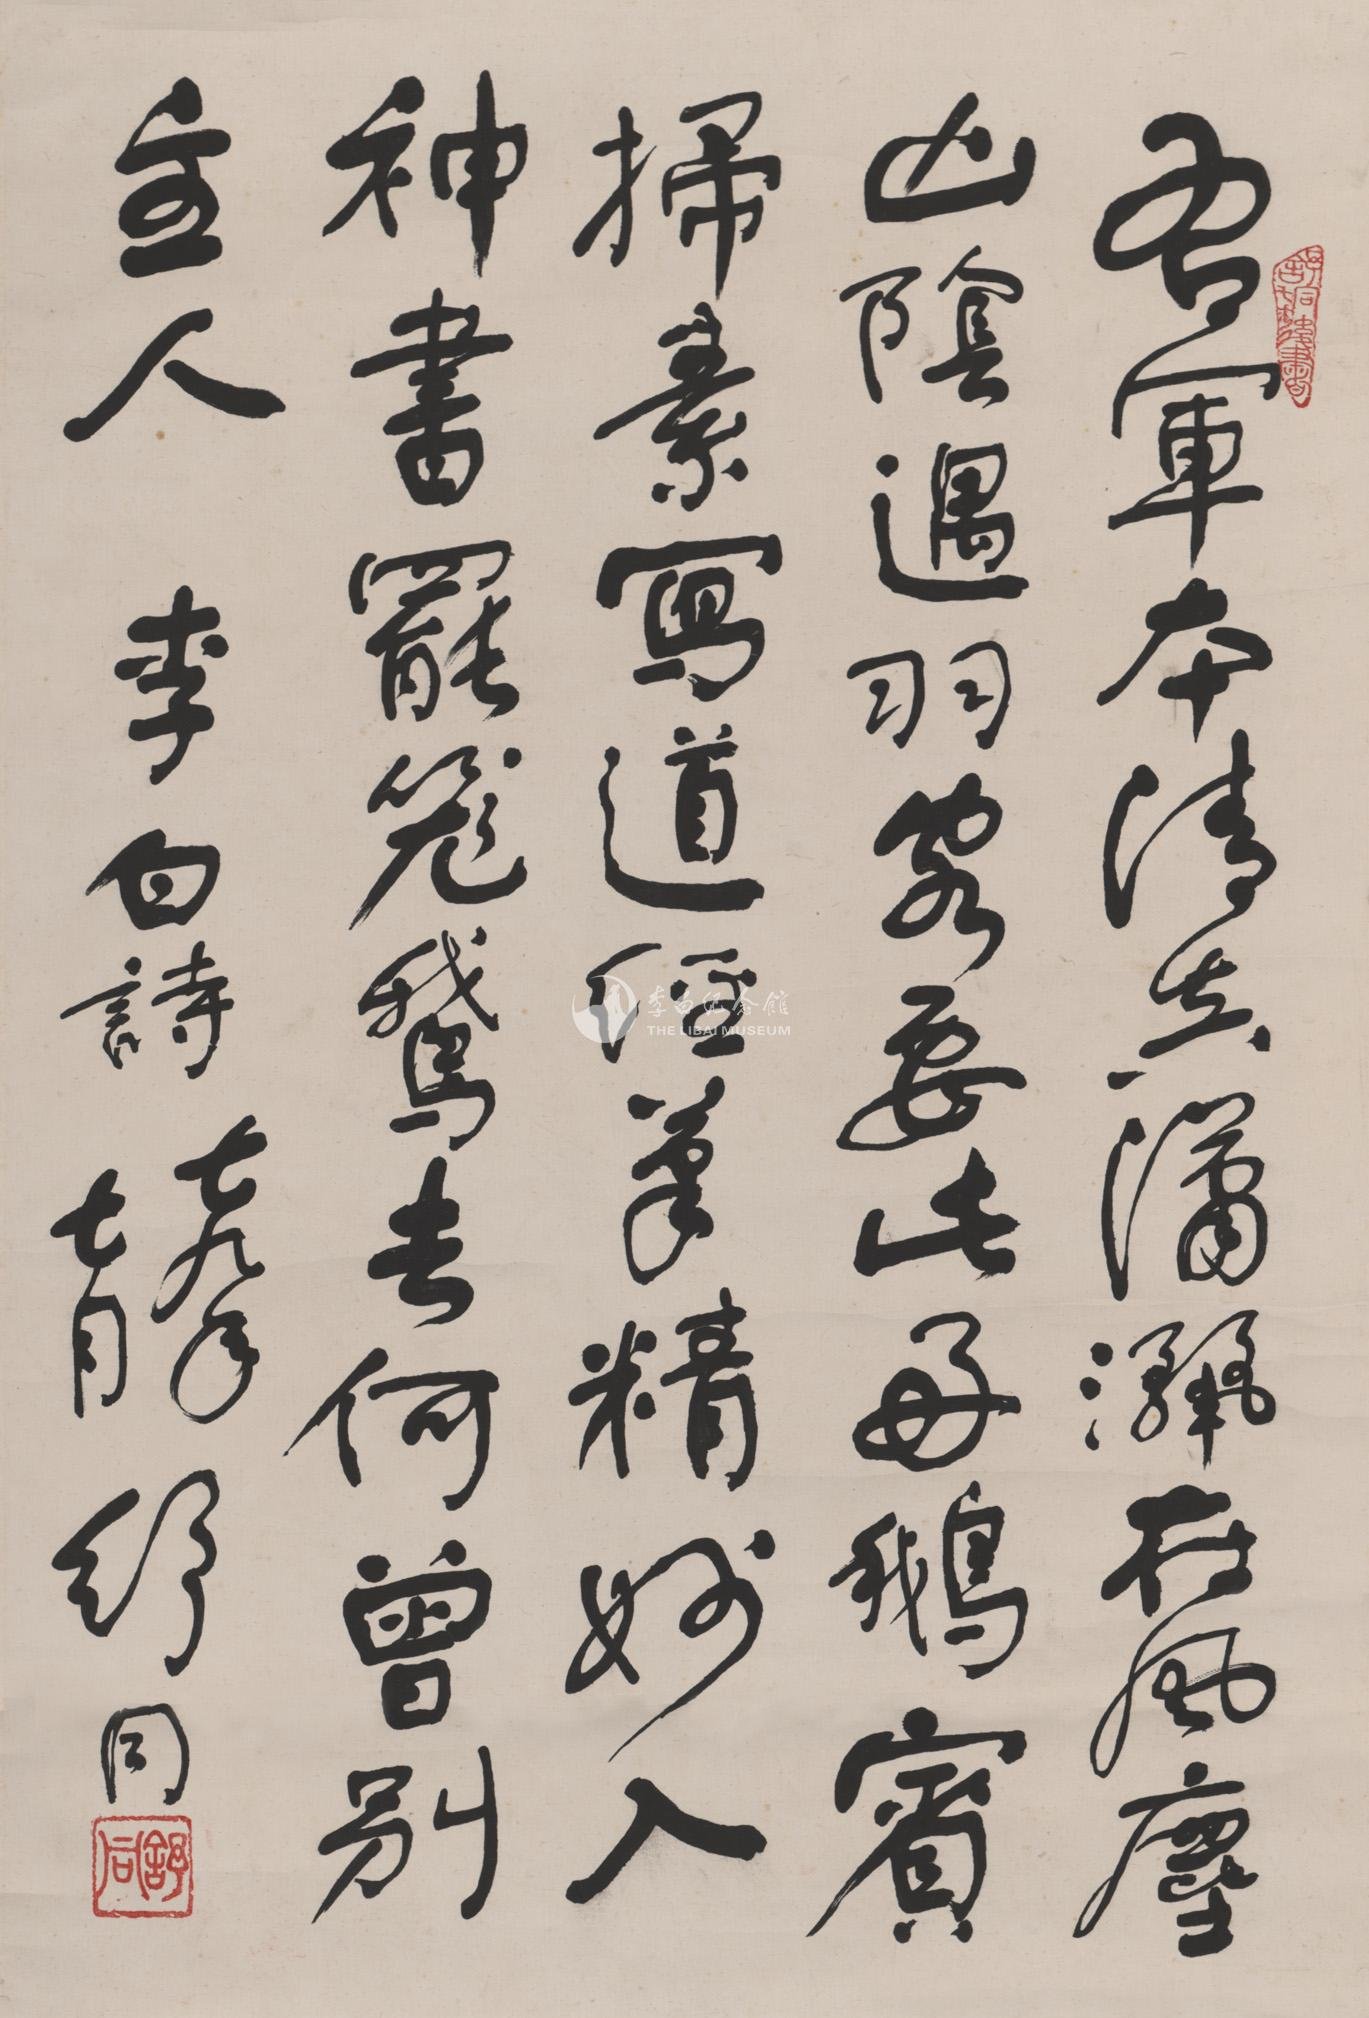 右軍本清真瀟灑在風塵
山陰遇羽客要此好鵝賓
掃素寫道經筆精妙入
神書罷笼鵞去何曾別
主人 李白詩 七九年
七月 舒同
舒同
李白纪念館
THE LIBAI MUSEUM